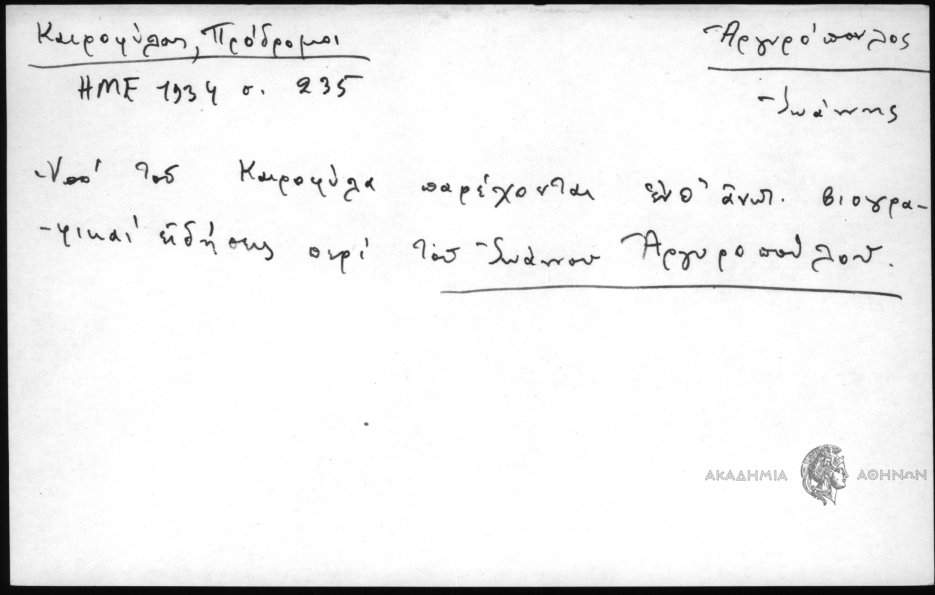 Καιροφύλας, Πρόδρομοι
ΗΜΕ 1934 σ. 235
Ἀργυρόπουλος
Ἰωάννης
Ὑπό τοῦ Καιροφύλα παρέχονται ἐνθ' ἀνωτ. βιογρα-
-φικαί εἰδήσεις περί τοῦ Ἰωάννου Ἀργυροπούλου.
ΑΚΑΔΗΜΙΑ ΑΘΗΝΩΝ